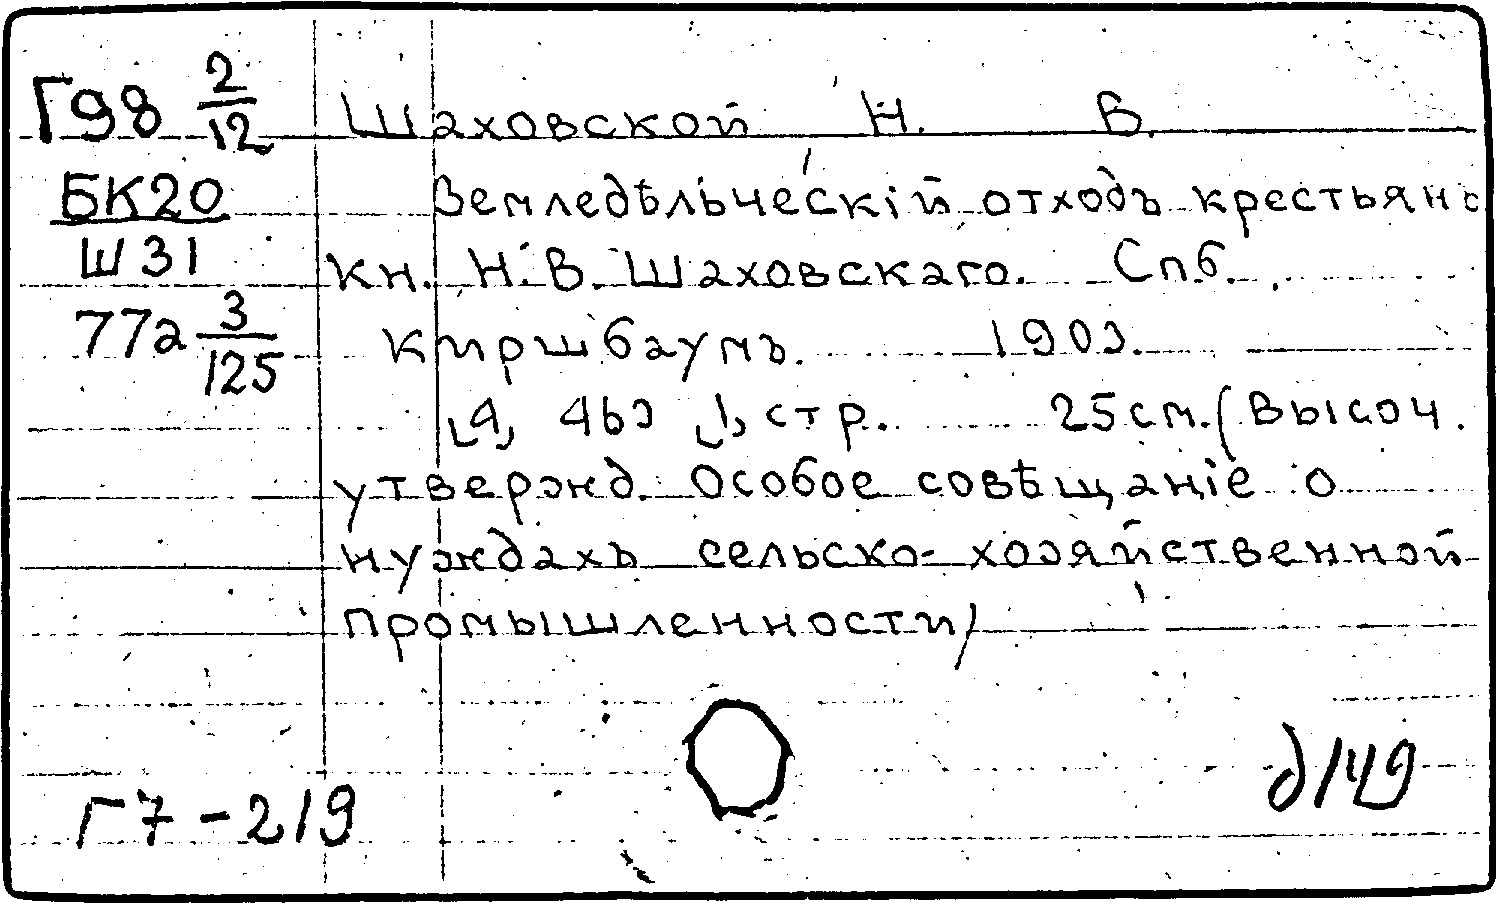 Г98 2/12 Шаховской Н. В.
БК20 Земледѣльческій отходъ крестьянъ
Ш31 кн. Н. В. Шаховскаго. Спб.
77а 3/125 Киршбаумъ. 1903.
[4], 463 [1], стр. 25 см. (Высоч.
утвержд. Особое совѣщаніе о
нуждахъ сельско-хозяйственной
промышленности)
Г7-219 д/49